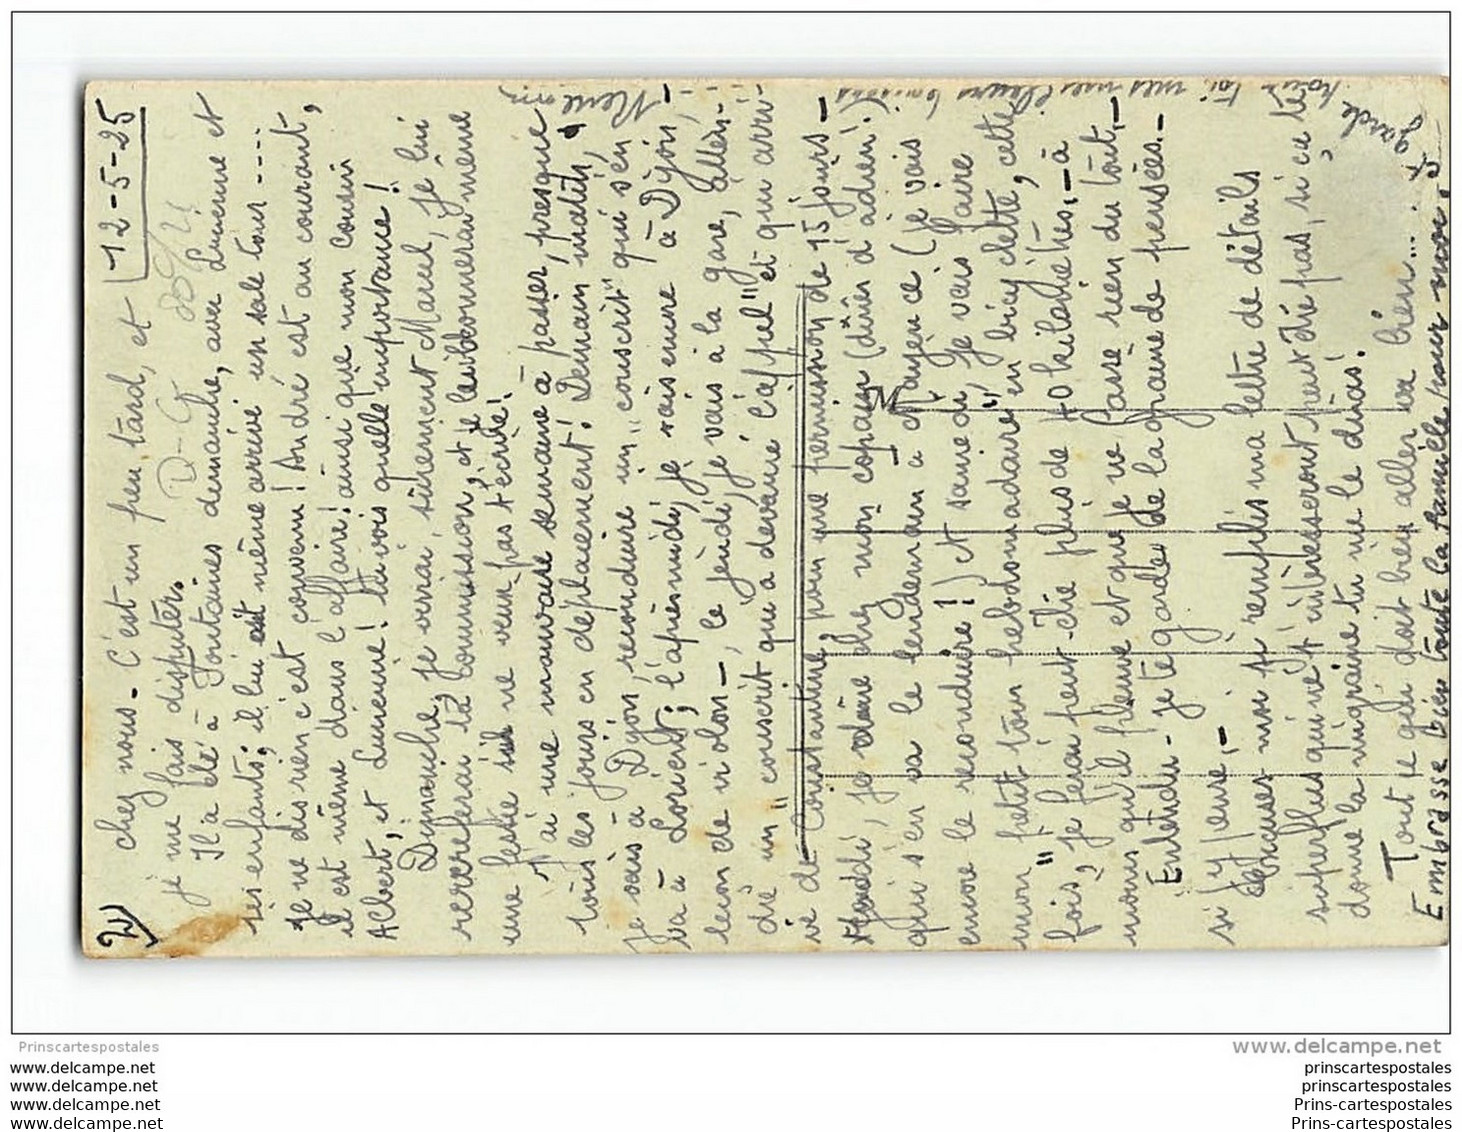 2)
12-5-25
chez nous - C'est un peu tard, et
je me fais disputer.
Il a été à Fontaines dimanche, avec Lucienne et
ses enfants; il lui est même arrivé un sale tour ----
je ne dis rien c'est convenu! André est au courant,
il est même dans l'affaire! ainsi que mon cousin
Albert, et Lucienne! tu vois quelle importance!
Dimanche, je verrai, sûrement Marcel, je lui
referai la commission, et je lui donnerai même
une lettre s'il ne veut pas t'écrire!
J'ai une mauvaise semaine à passer, presque
tous les jours en déplacement! Demain matin,
je vais à Dijon, reconduire un "conscrit" qui s'en
va à Lorient; l'après midi, je vais encore à Dijon,
leçon de violon -, le jeudi, je vais à la gare, atten-
dre un "conscrit qui a devancé l'appel" et qui arri-
ve de Constantine, pour une permission de 15 jours -
Vendredi, je dîne chez mon copain (dîner d'adieu!
qui s'en va le lendemain à Mayence (je vais
encore le reconduire!) et samedi, je vais faire
mon "petit tour hebdomadaire" en bicyclette, cette
fois, je ferai peut-être plus de 40 kilomètres, - à
moins qu'il pleuve et que je ne fasse rien du tout, -
Entendu - je te garde, de la graine de pensées. -
si j'y pense; -
Excuses-moi si je remplis ma lettre de détails
superflus qui ne t'intéresseront peut être pas, si ça te
donne la migraine tu me le diras!
Tout le monde doit bien aller ... bien... et garde
pour toi, mes meilleurs baisers
Embrasse bien toute la famille pour moi,
Prinscartespostales
www.delcampe.net
www.delcampe.net
www.delcampe.net
www.delcampe.net
www.delcampe.net
prinscartespostales
prinscartespostales
Prins-cartespostales
Prins-cartespostales